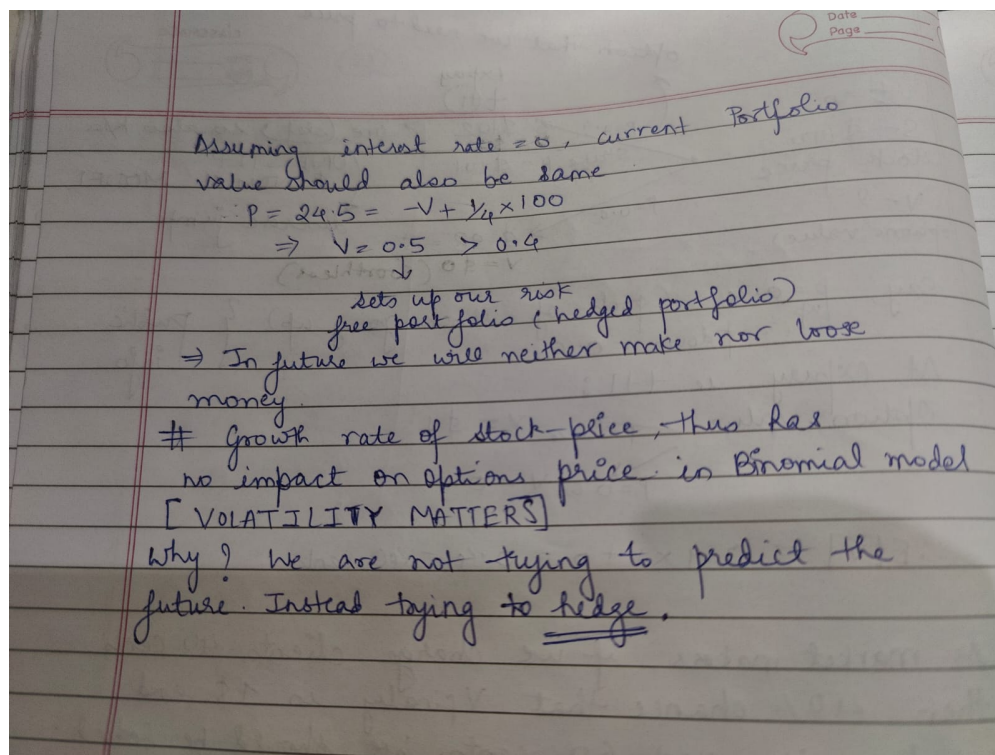 Date
Page
Assuming interest rate = 0, current Portfolio
value should also be same
∴ P = 24.5 = -V + 1/4 × 100
⇒ V = 0.5 > 0.4
↓
sets up our risk
free port folio (hedged portfolio)
⇒ In future we will neither make nor loose
money.
# Growth rate of stock-price, thus has
no impact on options price in Binomial model
[VOLATILITY MATTERS]
Why? We are not trying to predict the
future. Instead trying to hedge.